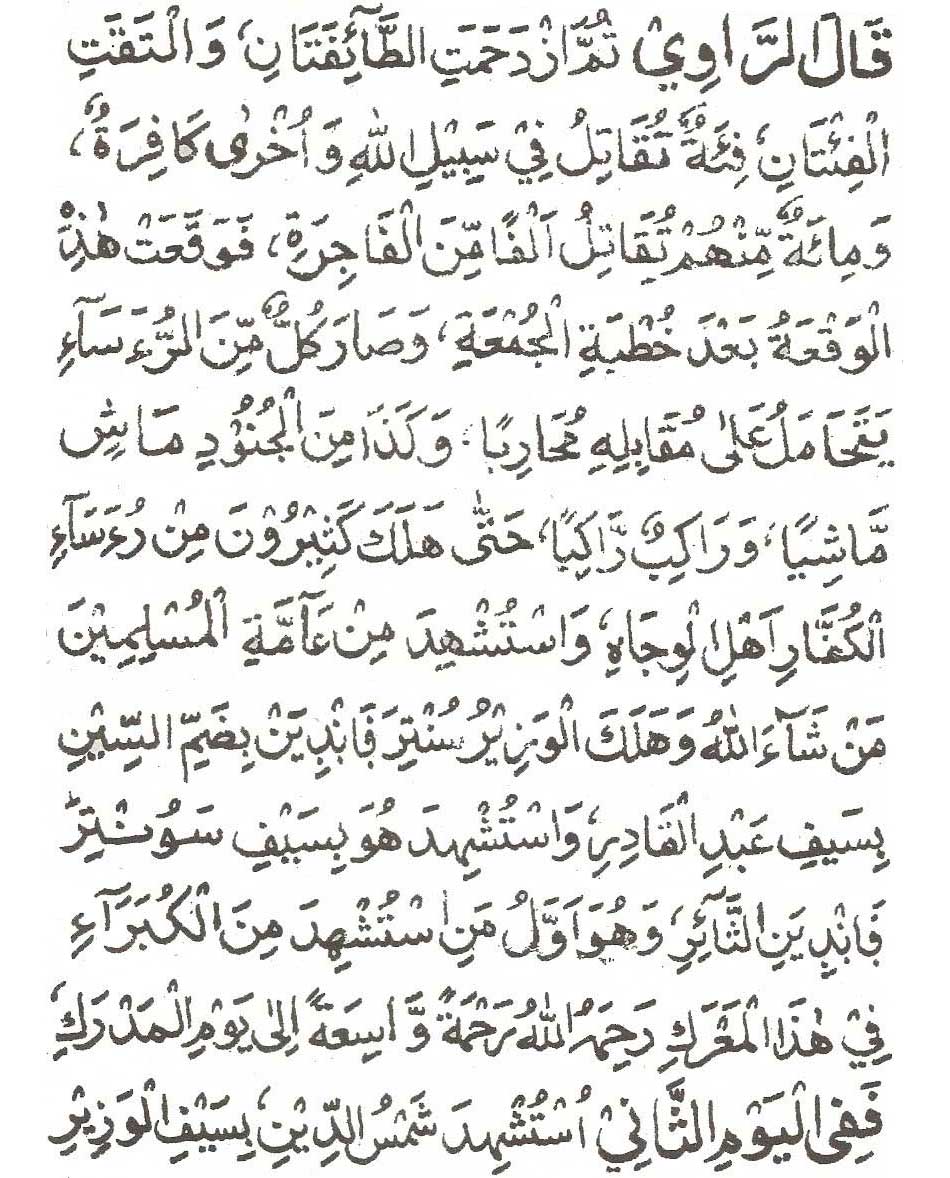 قَالَ الرَّاوِيْ ثُمَّ ازْدَحَمَتِ الطَّآئِفَتَانِ، وَالْتَقَتِ
الْفِئَتَانِ، فِئَةٌ تُقَاتِلُ فِيْ سَبِيْلِ اللهِ وَاُخْرٰى كَافِرَةٌ،
وَمِائَةٌ مِّنْهُمْ تُقَاتِلُ اَلْفًا مِّنَ الْفَاجِرَةِ، فَوَقَعَتْ هٰذِهِ
الْوَقْعَةُ بَعْدَ خُطْبَةِ الْجُمْعَةِ، وَصَارَ كُلٌّ مِّنَ الرُّءَسَآءِ
يَتَحَامَلُ عَلٰى مُقَابِلِهِ مُحَارِبًا، وَكَذَا مِنَ الْجُنُوْدِ مَاشٍ
مَّاشِيًا، وَرَاكِبٌ رَّاكِبًا، حَتّٰى هَلَكَ كَثِيْرُوْنَ مِنْ رُءَسَآءِ
الْكُفَّارِ اَهْلِ الْوِجَاهِ، وَاسْتُشْهِدَ مِنْ عَآمَّةِ الْمُسْلِمِيْنَ
مَنْ شَآءَ اللهُ وَهَلَكَ الْوَزِيْرُ سُنْتِرَ فَانْدِيَنْ بِضَمِّ السِّيْنِ
بِسَيْفِ عَبْدِ الْقَادِرِ، وَاسْتُشْهِدَ هُوَ بِسَيْفِ سَوُنْتِرَ
فَانْدِيَنِ الثَّآئِرِ، وَهُوَ اَوَّلُ مَنِ اسْتُشْهِدَ مِنَ الْكُبَرَآءِ
فِيْ هٰذَا الْمَعْرَكِ رَحِمَهُ اللهُ رَحْمَةً وَّاسِعَةً اِلٰى يَوْمِ الْمَدْرَكِ،
فَفِى الْيَوْمِ الثَّانِيْ اُسْتُشْهِدَ شَمْسُ الدِّيْنِ، بِسَيْفِ الْوَزِيْرِ